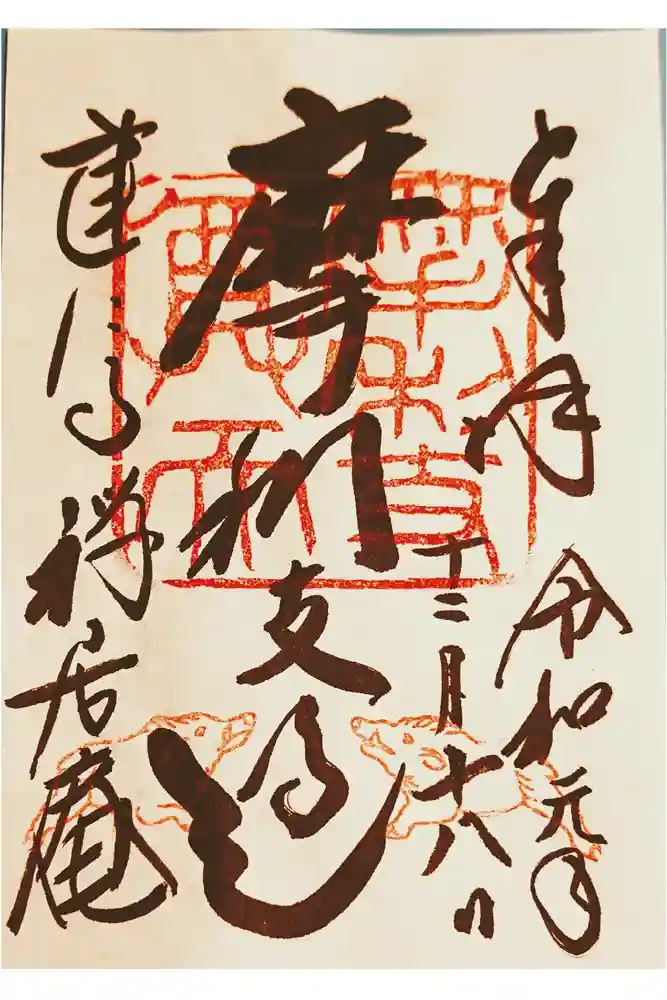 奉拝
令和元年
十二月十八日
摩利支尊天
建仁寺
禅居庵